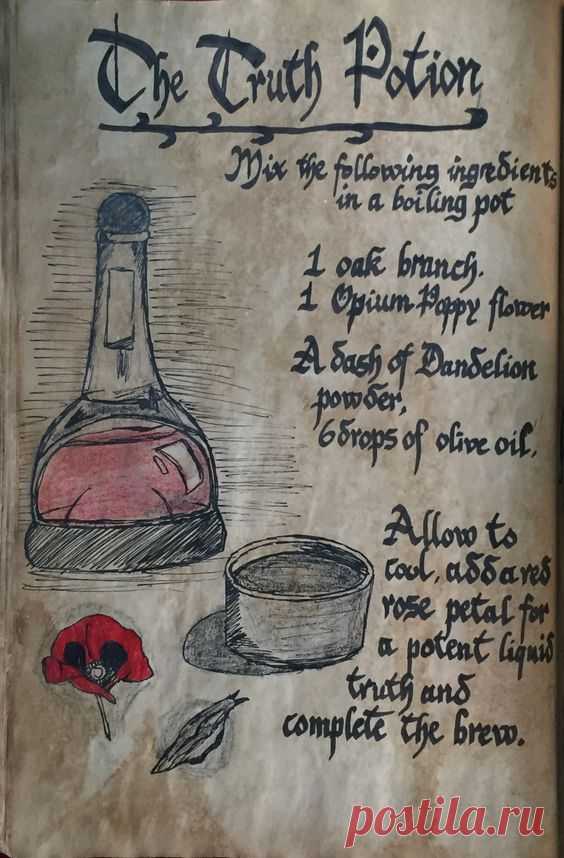 The Truth Potion
Mix the following ingredients
in a boiling pot
1 oak branch.
1 Opium Poppy flower
A dash of Dandelion
powder,
6 drops of olive oil.
Allow to
cool, add a red
rose petal for
a potent liquid
truth and
complete the brew.
postila.ru